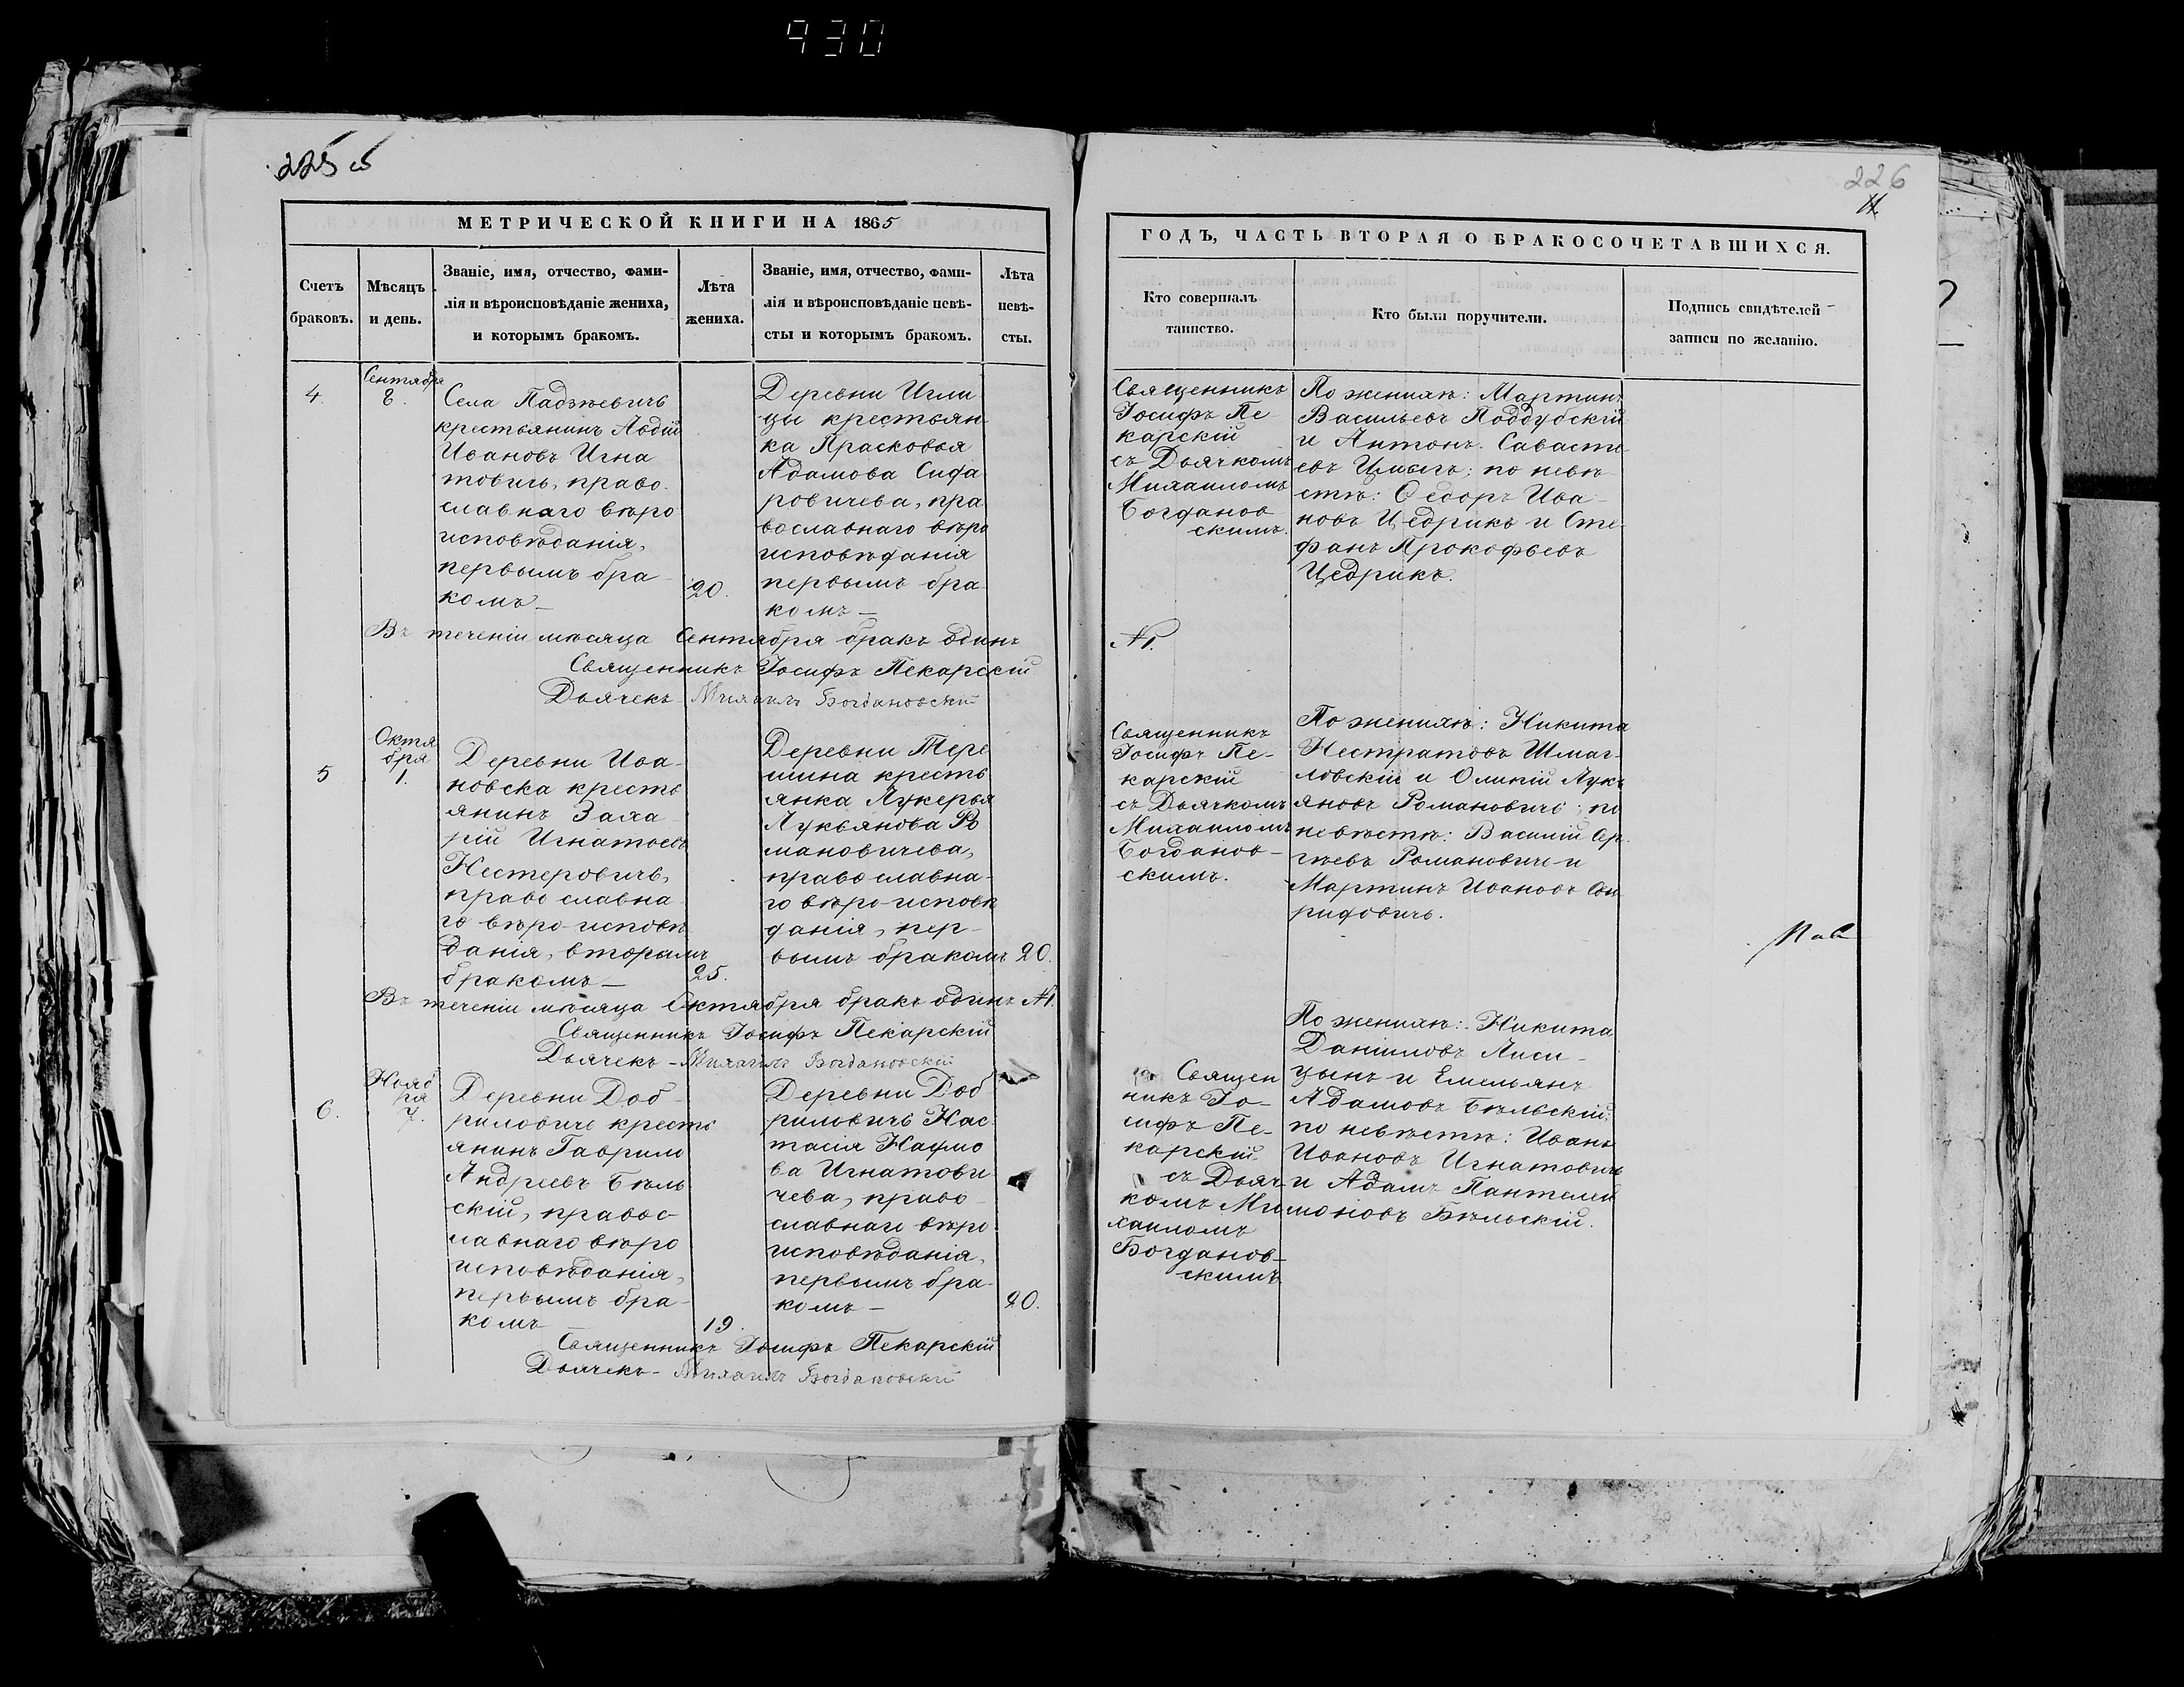 930
225 об
226
МЕТРИЧЕСКОЙ КНИГИ НА 1865
ГОДЪ, ЧАСТЬ ВТОРАЯ О БРАКОСОЧЕТАВШИХСЯ.
Счетъ
браковъ.
Мѣсяцъ
и день.
Званіе, имя, отчество, фами-
лія и вѣроисповѣданіе жениха,
и которымъ бракомъ.
Лѣта
жениха.
Званіе, имя, отчество, фами-
лія и вѣроисповѣданіе невѣ-
сты и которымъ бракомъ.
Лѣта
невѣ-
сты.
Кто совершалъ
таинство.
Кто были поручители.
Подпись свидѣтелей
записи по желанію.
4
Сентября
8.
Села Падзневичь
крестьянинъ Авдій
Ивановъ Игна
товичь, право
славнаго вѣро
исповѣданія,
первымъ бра
комъ—
20.
Деревни Игли
цы крестьян
ка Прасковья
Адамова Сифа
ровичева, пра
вославнаго вѣро
исповѣданія
первымъ бра
комъ—
Священникъ
Іосифъ Пе-
карскій
съ Дьячкомъ
Михаиломъ
Богданов
скимъ.
По женихѣ: Мартинъ
Васильевъ Поддубскій
и Антонъ Савасти
евъ ; по невѣ
стѣ: Ѳедоръ Ива-
новъ Цедрикъ и Сте-
фанъ Прокофьевъ
Цедрикъ.
Въ теченіи мѣсяца Сентября бракъ одинъ
№1.
Священникъ Іосифъ Пекарскій
Дьячекъ Михаилъ Богдановскій
5
Октя
бря
1.
Деревни Ива-
новска кресть
янинъ Заха
рій Игнатьевъ
Нестеровичь,
православна
го вѣро исповѣ
данія, вторымъ
бракомъ—
25.
Деревни Тере
шина кресть
янка Лукерья
Лукьянова Ро
мановичева,
православна-
го вѣро-исповѣ
данія, пер-
вымъ бракомъ
20.
Священникъ
Іосифъ Пе-
карскій
съ Дьячкомъ
Михаиломъ
Богданов-
скимъ.
По женихѣ: Никита
Нестратовъ Шмаг-
ловскій и Лукь
яновъ Романовичь; по
невѣстѣ: Василій Сер
гѣевъ Романовичь и
Мартинъ Ивановъ
Въ теченіи мѣсяца Октября бракъ одинъ №1.
Священникъ Іосифъ Пекарскій
Дьячекъ - Михаилъ Богдановскій
6.
Нояб
ря
7.
Деревни Доб-
риловичь кресть
янинъ Гаврило
Андреевъ Бѣль
скій, правос-
лавнаго вѣро
исповѣданія,
первымъ бра-
комъ
19.
Деревни Доб
риловичь Нас
тасія Наумо
ва Игнатови
чева, право-
славнаго вѣро
исповѣданія,
первымъ бра-
комъ—
20.
Священ
никъ Іо-
сифъ Пе-
карскій
съ Дьяч
комъ Ми
хаиломъ
Богданов-
скимъ
По женихѣ: Никита
Даніиловъ Лиси-
цынъ и Емельянъ
Адамовъ Бѣльскій;
по невѣстѣ: Иванъ
Ивановъ Игнатовичь
и Адамъ Пантелей
моновъ Бѣльскій.
Священникъ Іосифъ Пекарскій
Дьячекъ- Михаилъ Богдановскій